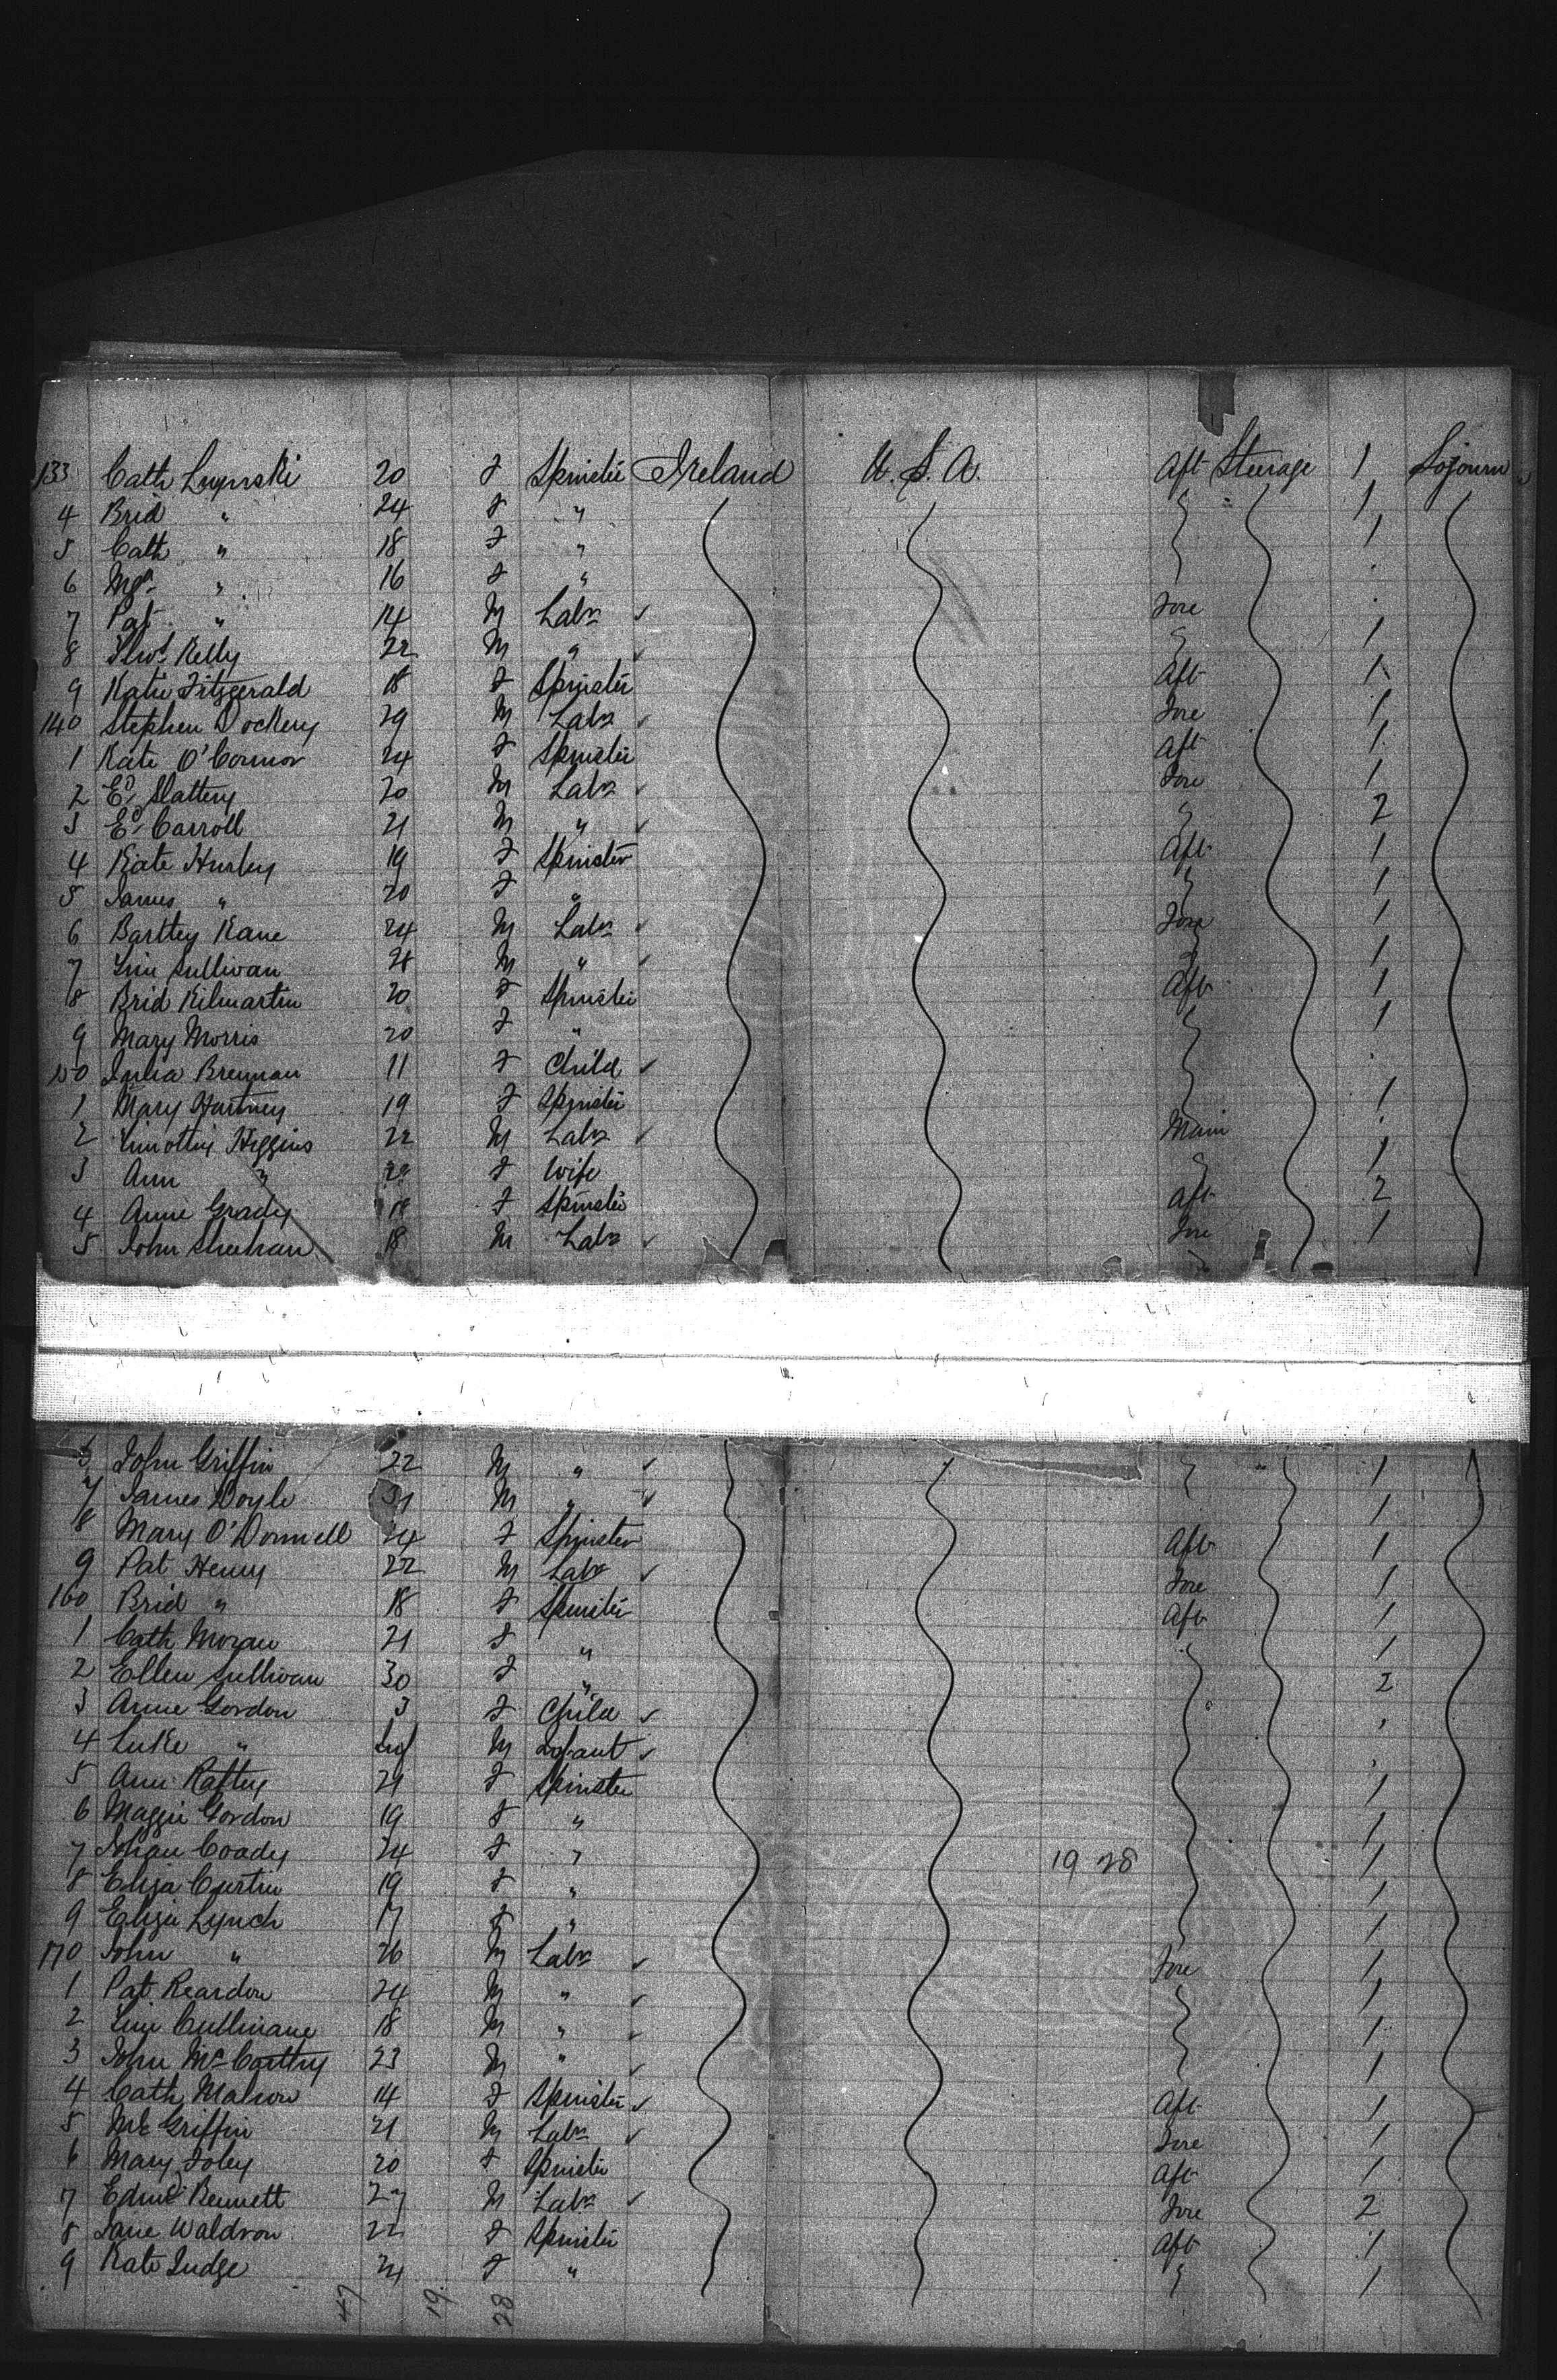 133 Cath 20 F Spinster Ireland U.S.A. Aft Steerage 1 Sojourn
4 Brid " 24 F " 1
5 Cath " 18 F " 1
6 " 16 F "
7 Pat " 14 M Labr ✓ Fore
8 Thos Kelly 22 M " ✓ 1
9 Katie Fitzgerald 18 F Spinster Aft 1
140 Stephen Dockery 29 M Labr ✓ Fore 1
1 Kate O'Connor 24 F Spinster Aft 1
2 Ed Slattery 20 M Labr ✓ Fore 1
3 Ed Carroll 21 M " ✓ 2
4 Kate Hurley 19 F Spinster Aft 1
5 James " 20 F " 1
6 Bartley Kane 24 M Labr ✓ Fore 1
7 Sullivan M " ✓ 1
8 Brid Kilmartin 20 F Spinster Aft 1
9 Mary Morris 20 F " 1
150 Julia Brennan 11 F Child ✓
1 Mary Hartney 19 F Spinster 1
2 Timothy Higgins 22 M Labr ✓ Main
3 Ann " F Wife 1
4 Anne Grady 18 F Spinster Aft 2
5 John Sheehan 18 M Labr ✓ Fore 1
John Griffin 22 M " ✓ 1
7 James Doyle M " ✓ 1
8 Mary O'Donnell 24 F Spinster Aft 1
9 Pat Henry 22 M Labr ✓ Fore 1
160 Brid " 18 F Spinster Aft 1
1 Cath Moran 21 F " 1
2 Ellen Sullivan 30 F " 2
3 Anne Gordon 3 F Child ✓
4 Luke " Inf M Infant ✓
5 Ann Raftery 21 F Spinster 1
6 Maggie Gordon 19 F " 1
7 Johan Coady 24 F " 19 28 1
8 Eliza Curtin 19 F " 1
9 Eliza Lynch 17 F " 1
170 John " 26 M Labr ✓ Fore 1
1 Pat Reardon 24 M " ✓ 1
2 Tim Cullinane 18 M " ✓ 1
3 John McCarthy 23 M " ✓ 1
4 Cath Malone 14 F Spinster ✓ Aft 1
5 Griffin 21 M Labr ✓ Fore 1
6 Mary Foley 20 F Spinster Aft 1
7 Edmd Bennett 27 M Labr ✓ Fore 2
8 Jane Waldron 22 F Spinster Aft 1
9 Kate Judge 24 F " 1
47 19 28